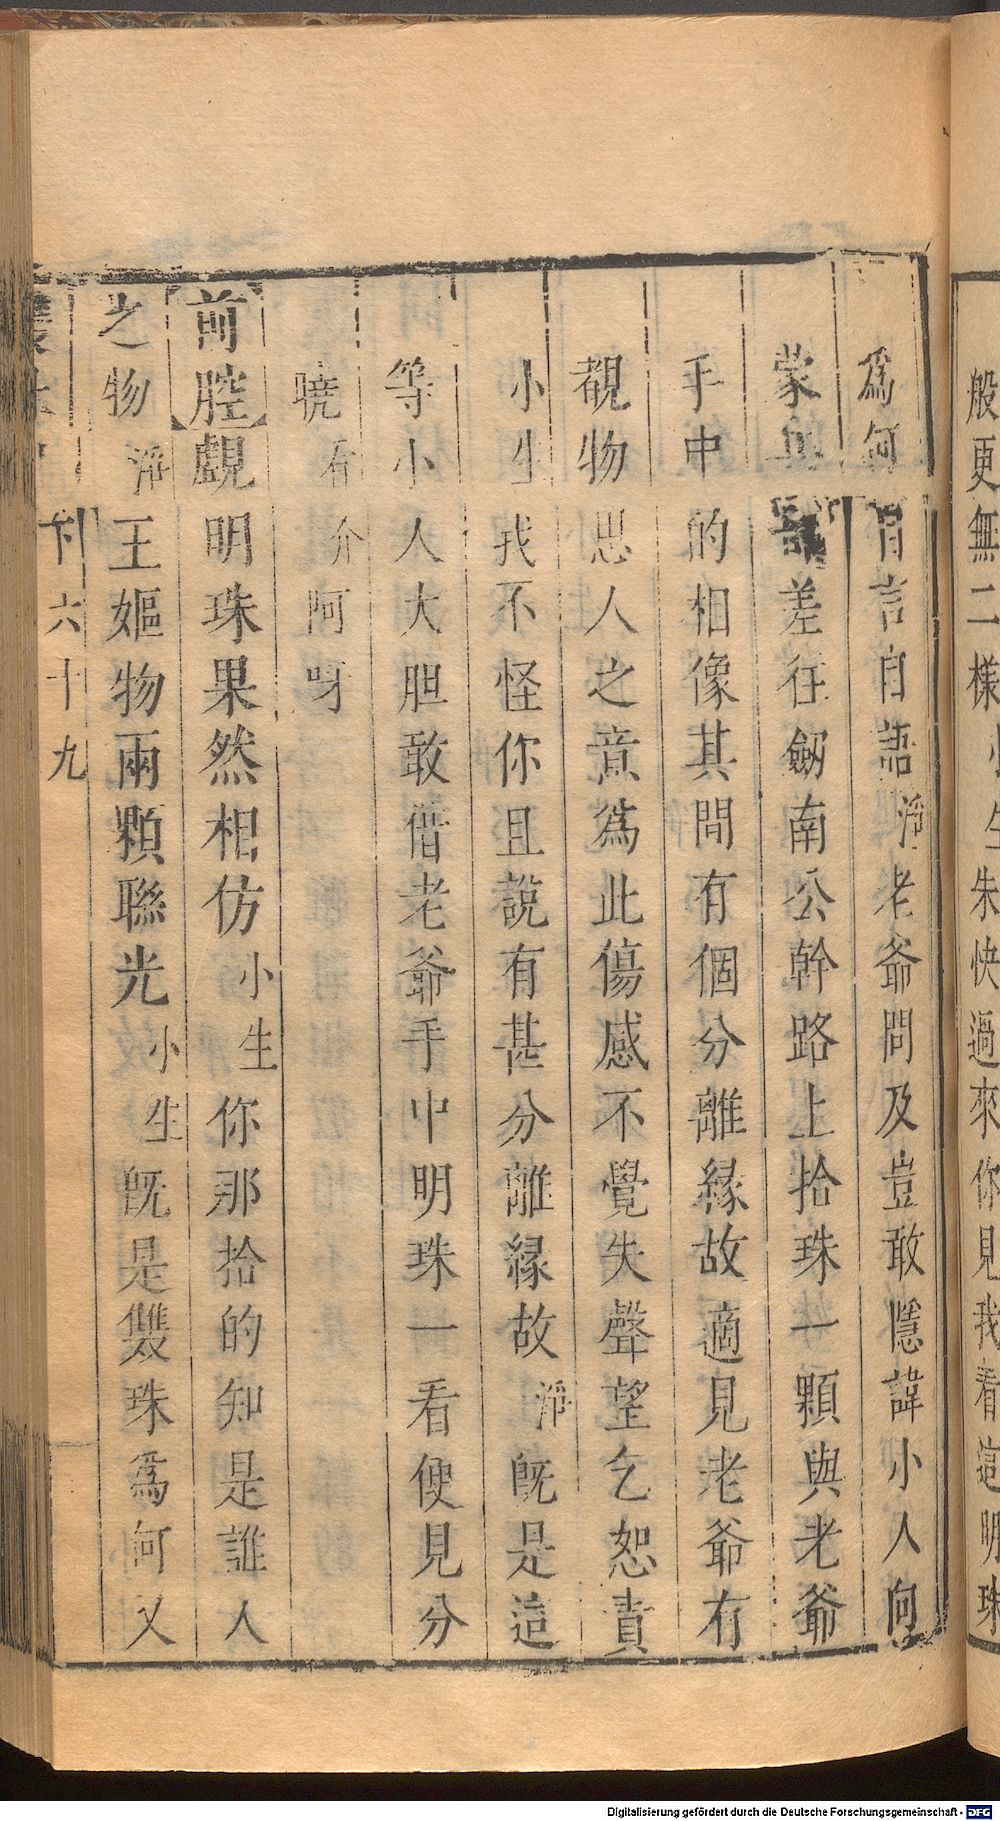 般更無二樣小生朱快過來你見我看這明珠
爲何自言自語淨老爺問及豈敢隱諱小人向
蒙差往劔南公幹路上拾珠一顆與老爺
手中的相像其間有個分離緣故適見老爺有
覩物思人之意爲此傷感不覺失聲望乞恕責
小生我不怪你且說有甚分離緣故淨旣是這
等小人大胆敢借老爺手中明珠一看便見分
曉看介阿呀
【前腔】覷明珠果然相仿小生你那拾的知是誰人
之物淨王嫗物兩顆聯光小生旣是雙珠爲何又
下六十九
Digitalisierung gefördert durch die Deutsche Forschungsgemeinschaft - DFG